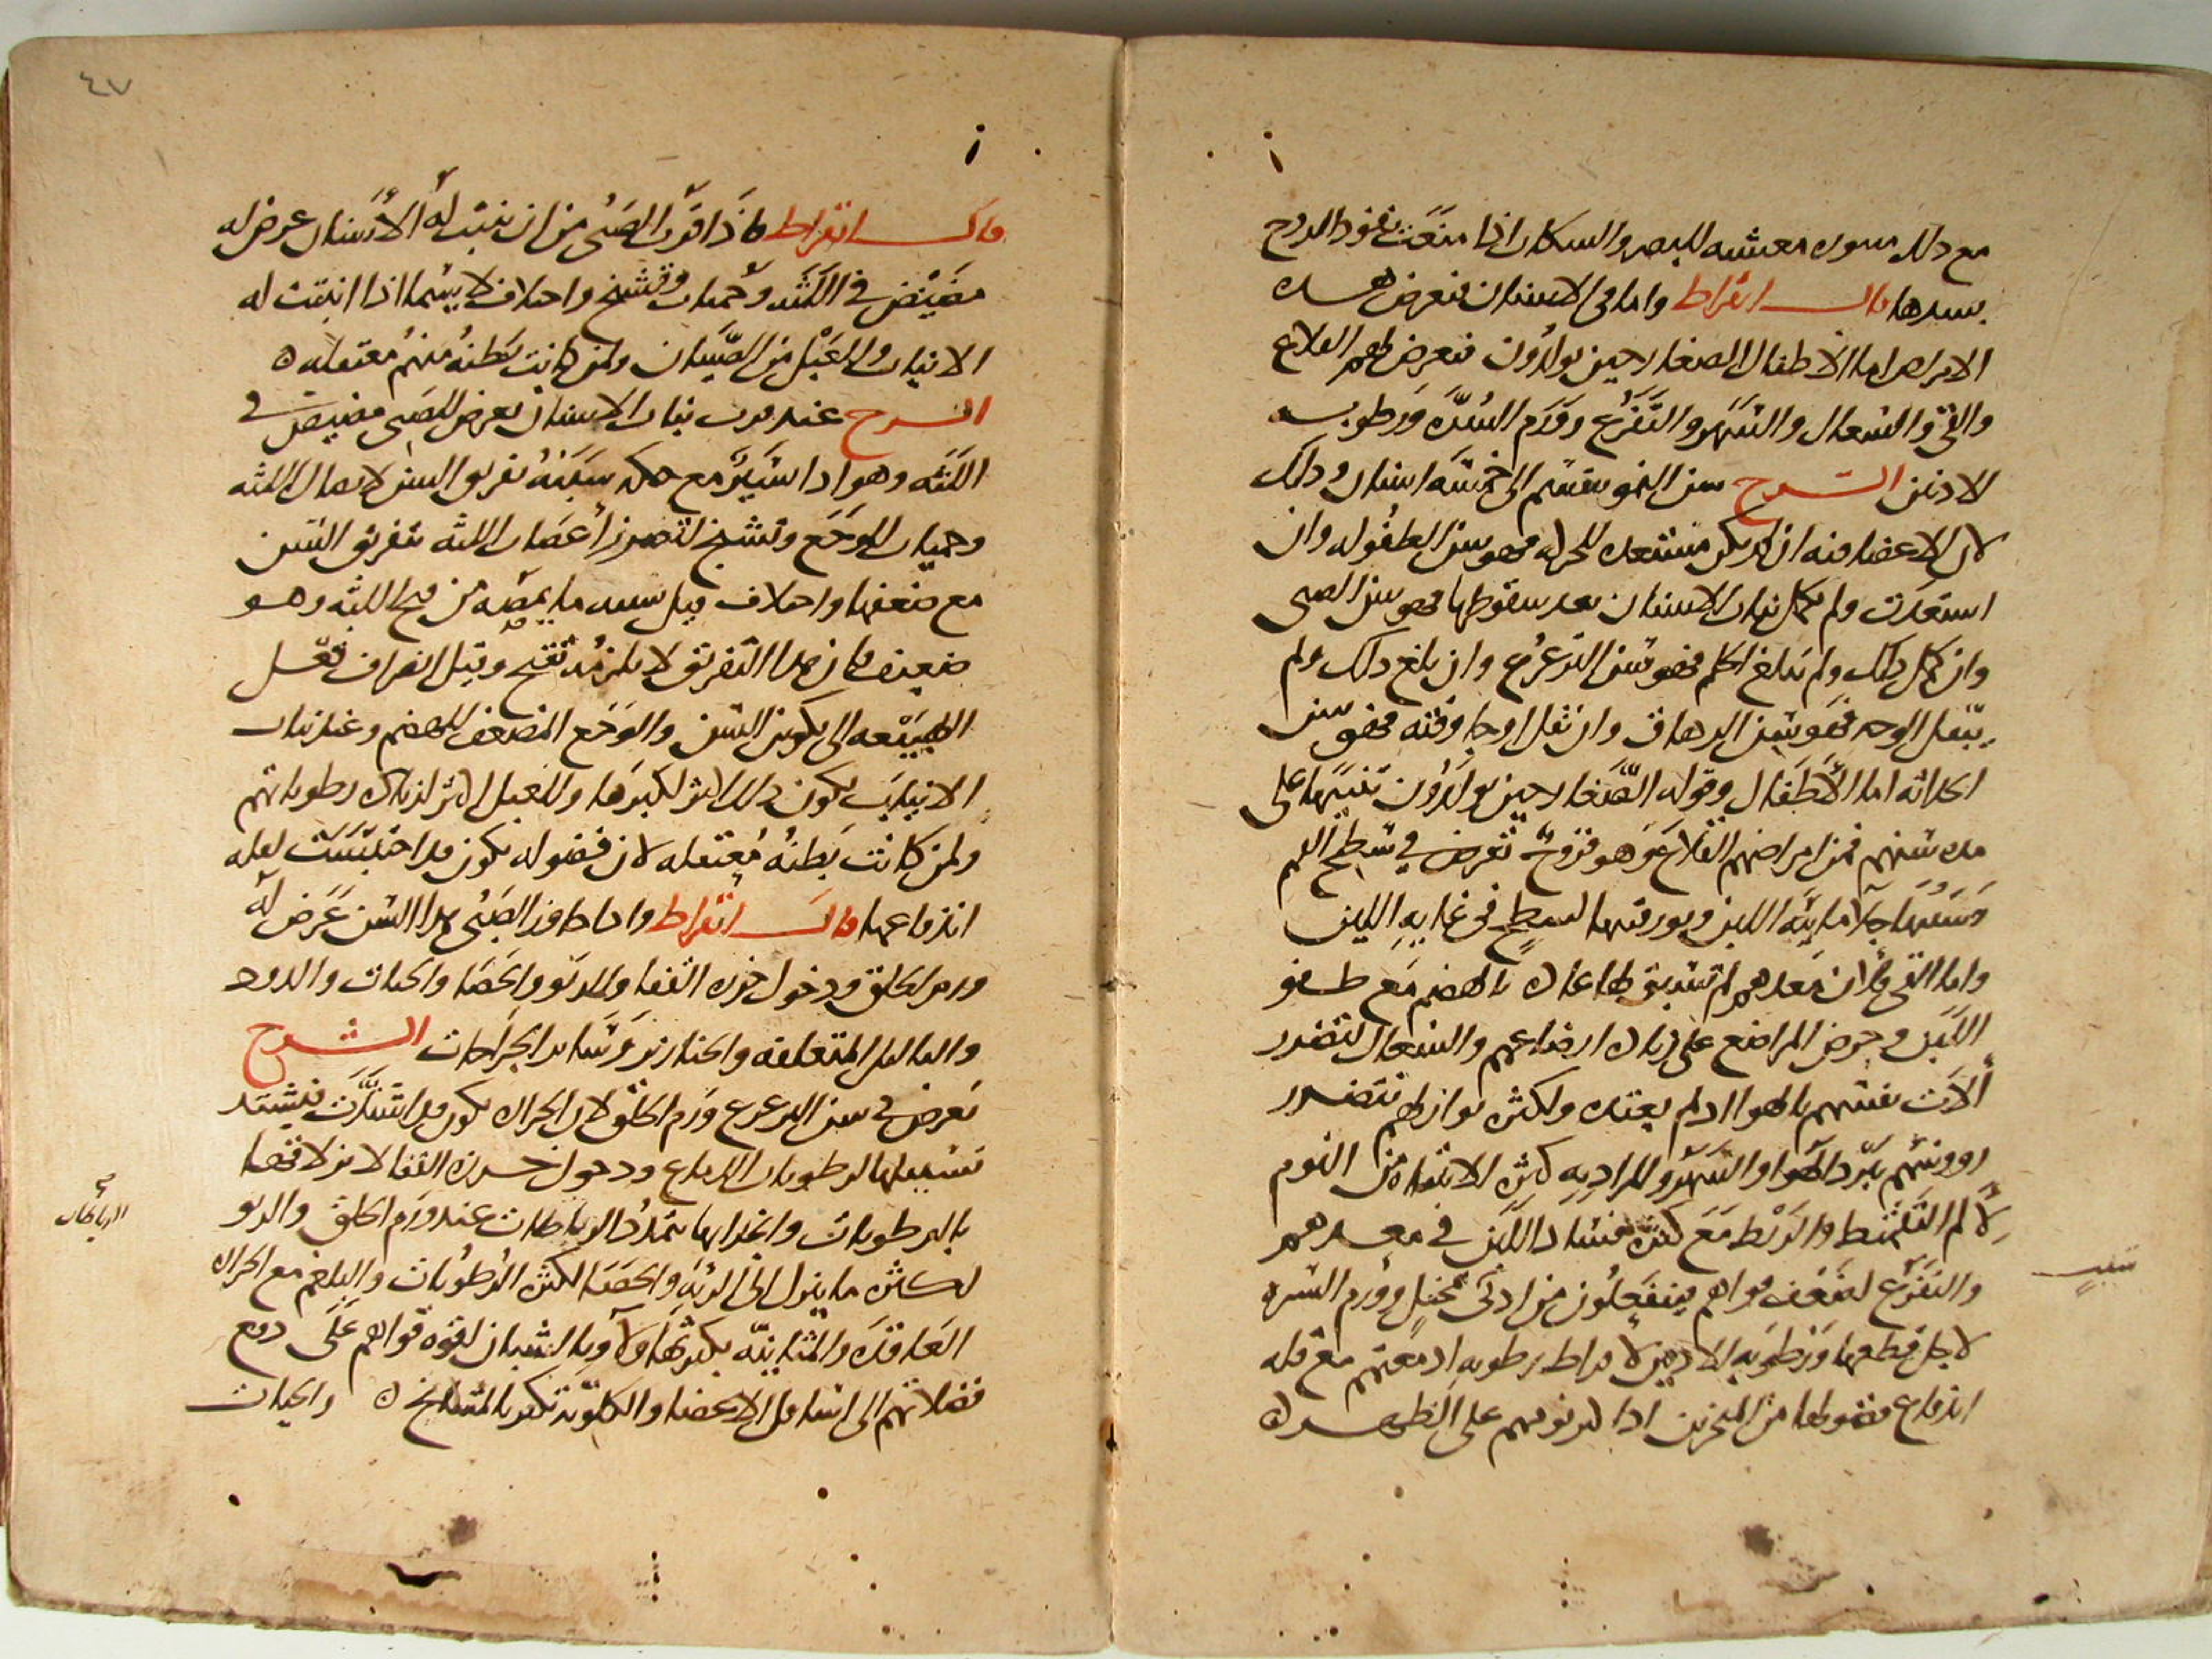 مع ذلك سوره معشيه للبصر والسكات اذا منعت نفوذ الروح
بسدها قال ابقراط واما في الاسنان فتعرض هذه
الامراض اما الاطفال الصغار حين يولدون فتعرض لهم القلاع
والقي والسعال والسهر والتفزع وورم السره ورطوبه
الاذنين الشرح سن النمو ينقسم الى خمسة اسنان وذلك
لان الاعضا فيه ان لم يكن مستعده للحركه فهو سن الطفوله وان
استعدت ولم يكمل نبات الاسنان بعد سقوطها فهو سن الصبى
وان كمل ذلك ولم يبلغ الحلم فهو سن الترعرع وان بلغ ذلك ولم
يبقل الوجه فهو سن الرهاق وان بقل وجا وقته فهو سن
الحداثه اما الاطفال وقوله الصغار حين يولدون تنبيها على
مده سنهم فمن امراضهم القلاع وهو قروح تعرض في سطح الفم
وسببها جلا مايية اللبن وبورقيتها لسطح في غايه اللين
واما القي فلان معدهم لم تسبق لها عاده بالهضم مع طفو
اللبن وحرص المراضع على زياده ارضاعهم والسعال لتضرر
آلات نفسهم بالهوا اذ لم يعتده ولكثره نوازلهم لتضرر
رووسهم ببرد الهوا والسهر والمراد به كثره الانتباه من النوم
لالم التقميط والربط مع كثره فساد اللبن في معدهم
والتفزع لضعف قواهم فينفعلون من ادنى مخيل وورم السره
لاجل قطعها ورطوبه الاذنين لافراط رطوبه ادمغتهم مع قله
اندفاع فضولها من المنخرين اذا كثر نومهم على الظهر
٤٧
قال ابقراط فاذا قرب الصبى من ان تنبت له الاسنان عرض له
مضيض في اللثه وحميات وتشنج واختلاف لاسيما اذا انبتت له
الانياب وللعبل من الصبيان ولمن كانت بطنه منهم معتقله
الشرح عند قرب نبات الاسنان يعرض للصبى مضيض في
اللثه وهو اذا يسير مع حكه سببه تفريق السن لاتصال اللثه
وحميات للوجع وتشنج لتضرر اعصاب اللثه بتفريق السن
مع ضعفها واختلاف قيل سببه ما يمصه من قيح اللثه وهو
ضعيف فان هذا التفريق لا يلزمه تقيح وقيل انصراف فعل
الطبيعه الى تكوين السن والوجع المضعف للهضم وعند نبات
الانياب يكون ذلك اكثر لكبرها وللعبل اكثر لزياده رطوباتهم
ولمن كانت بطنه معتقله لان فضوله يكون قد احتبست لقله
اندفاعها قال ابقراط واذا جاوز الصبى هذا السن عرض له
ورم الحلق ودخول خرزه القفا والربو والحصا والحيات والدود
والثاليل المتعلقه والخنازير وساير الجراحات الشرح
يعرض في سن الترعرع ورم الحلق لان الحراره يكون قد اشتدت فيشتد
تسييلها لرطوبات الدماغ ودخول خرزه القفا لانزلاقها
بالرطوبات وانجذابها بتمدد الرباطات عند ورم الحلق والربو
لكثره ما ينزل الى الريه والحصا لكثره الرطوبات والبلغم مع الحراره
العاقده والمثانيه يكثر بهاولا وبالشبان لقوه قواهم على دفع
فضلاتهم الى اسافل الاعضا والكلويه تكثر بالمشايخ والحيات
صح
الرباطات